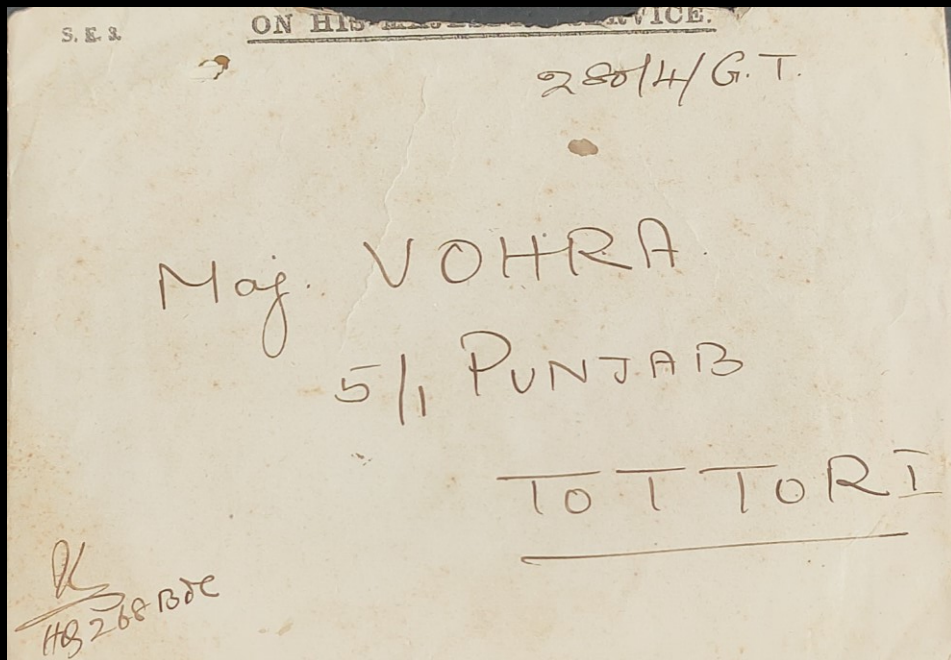 S. E. 3.
ON HIS SERVICE.
280/4/G.T.
Maj. VOHRA.
5/1 PUNJAB
TOTTORI
HQ 268 Bde